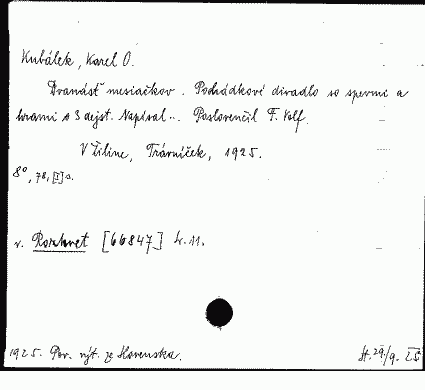 Kubálek, Karel O.
Dvanásť mesiačkov. Pohádkové divadlo so spevmi a
hrami o 3 dejst. Napísal... Poslovenčil F. Volf.
V Žiline, Trávníček, 1925.
8°, 78, [I] s.
v. Rozkvet [66847] sv. 11.
1925. Pov. výt. ze Slovenska.
29/9. 25